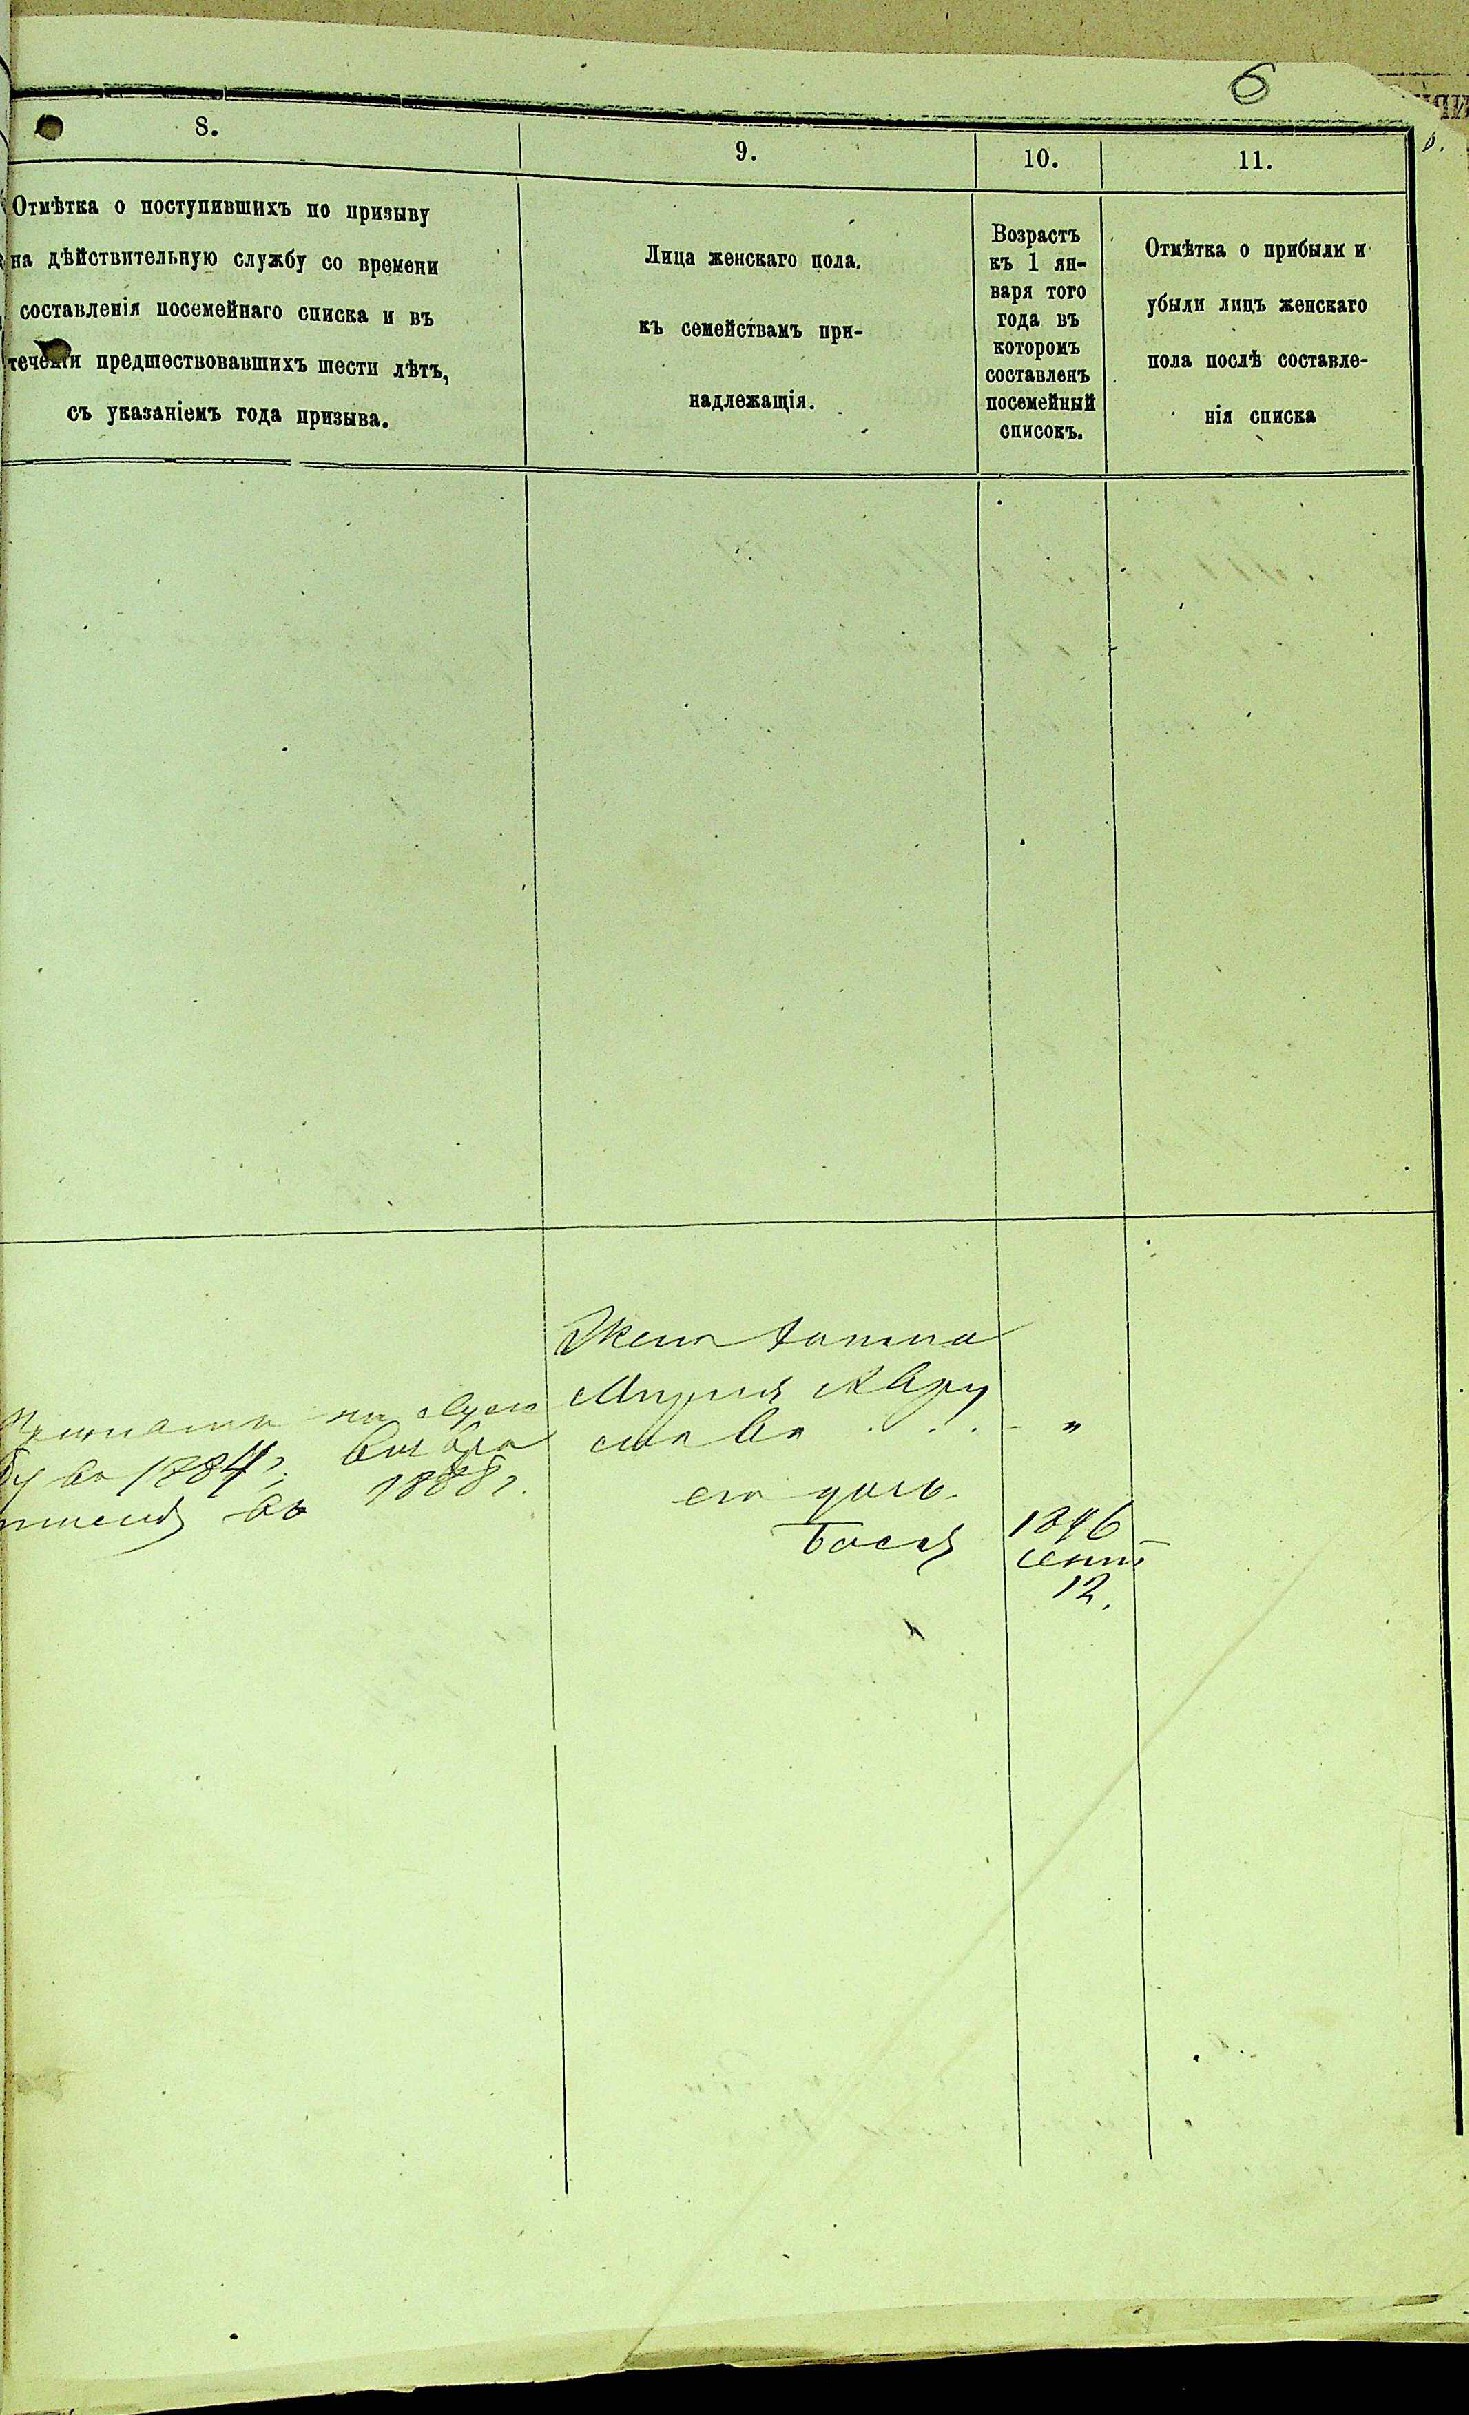 6
8.
9.
10.
11.
Отмѣтка о поступившихъ по призыву
на дѣйствительную службу со времени
составленія посемейнаго списка и въ
теченіи предшествовавшихъ шести лѣтъ,
съ указаніемъ года призыва.
Лица женскаго пола,
къ семействамъ при-
надлежащія.
Возрастъ
къ 1 ян-
варя того
года въ
которомъ
составленъ
посемейный
списокъ.
Отмѣтка о прибыли и
убыли лицъ женскаго
пола послѣ составле-
нія списка
на
въ 1884 г.
въ 1888 г.
Жена
"
его дочь
Бася
1896
сент
12.